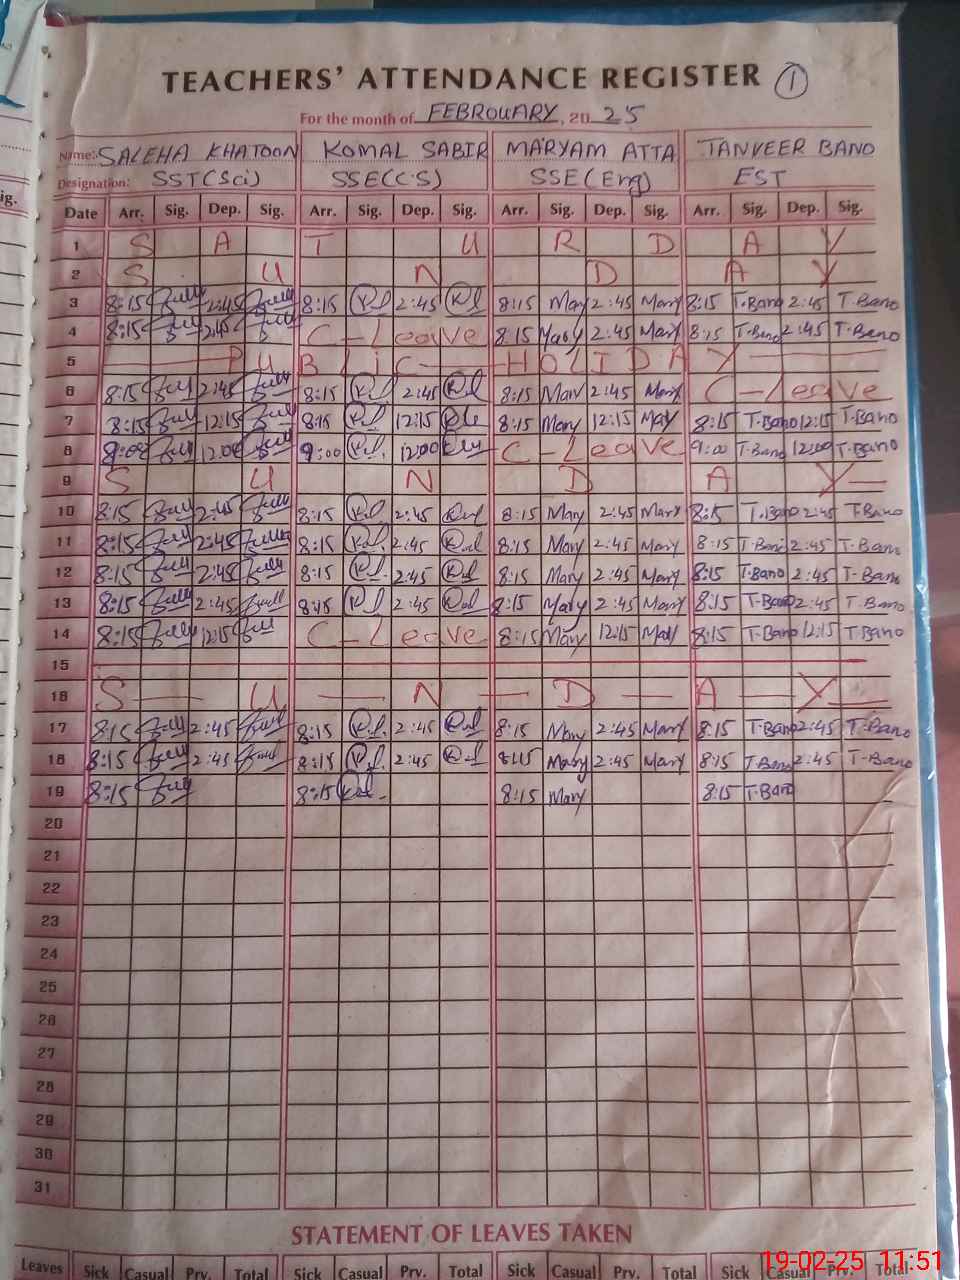 TEACHERS' ATTENDANCE REGISTER 1
For the month of FEBROUARY, 20 25
Name: SALEHA KHATOON KOMAL SABIR MARYAM ATTA TANVEER BANO
Designation: SST(Sci) SSE(C.S) SSE(Eng) EST
Date Arr. Sig. Dep. Sig. Arr. Sig. Dep. Sig. Arr. Sig. Dep. Sig. Arr. Sig. Dep. Sig.
1 S A T U R D A Y
2 S U N D A Y
3 8:15 2:45 8:15 2:45 8:15 Mary 2:45 Mary 8:15 T.Bano 2:45 T.Bano
4 8:15 2:45 C-Leave 8:15 Mary 2:45 Mary 8:15 T.Bano 2:45 T.Bano
5 PUBLIC HOLIDAY
6 8:15 2:45 8:15 2:45 8:15 Mary 2:45 Mary C-Leave
7 8:15 12:15 8:15 12:15 8:15 Mary 12:15 Mary 8:15 T.Bano 12:15 T.Bano
8 9:00 12:00 9:00 12:00 C-Leave 9:00 T.Bano 12:00 T.Bano
9 S U N D A Y
10 8:15 2:45 8:15 2:45 8:15 Mary 2:45 Mary 8:15 T.Bano 2:45 T.Bano
11 8:15 2:45 8:15 2:45 8:15 Mary 2:45 Mary 8:15 T.Bano 2:45 T.Bano
12 8:15 2:45 8:15 2:45 8:15 Mary 2:45 Mary 8:15 T.Bano 2:45 T.Bano
13 8:15 2:45 8:15 2:45 8:15 Mary 2:45 Mary 8:15 T.Bano 2:45 T.Bano
14 8:15 12:15 C-Leave 8:15 Mary 12:15 Mary 8:15 T.Bano 12:15 T.Bano
15
16 S U N D A Y
17 8:15 2:45 8:15 2:45 8:15 Mary 2:45 Mary 8:15 T.Bano 2:45 T.Bano
18 8:15 2:45 8:15 2:45 8:15 Mary 2:45 Mary 8:15 T.Bano 2:45 T.Bano
19 8:15 8:15 8:15 Mary 8:15 T.Bano
20
21
22
23
24
25
26
27
28
29
30
31
STATEMENT OF LEAVES TAKEN
Leaves Sick Casual Prv. Total Sick Casual Prv. Total Sick Casual Prv. Total Sick Casual Prv. Total
19-02-25 11:51